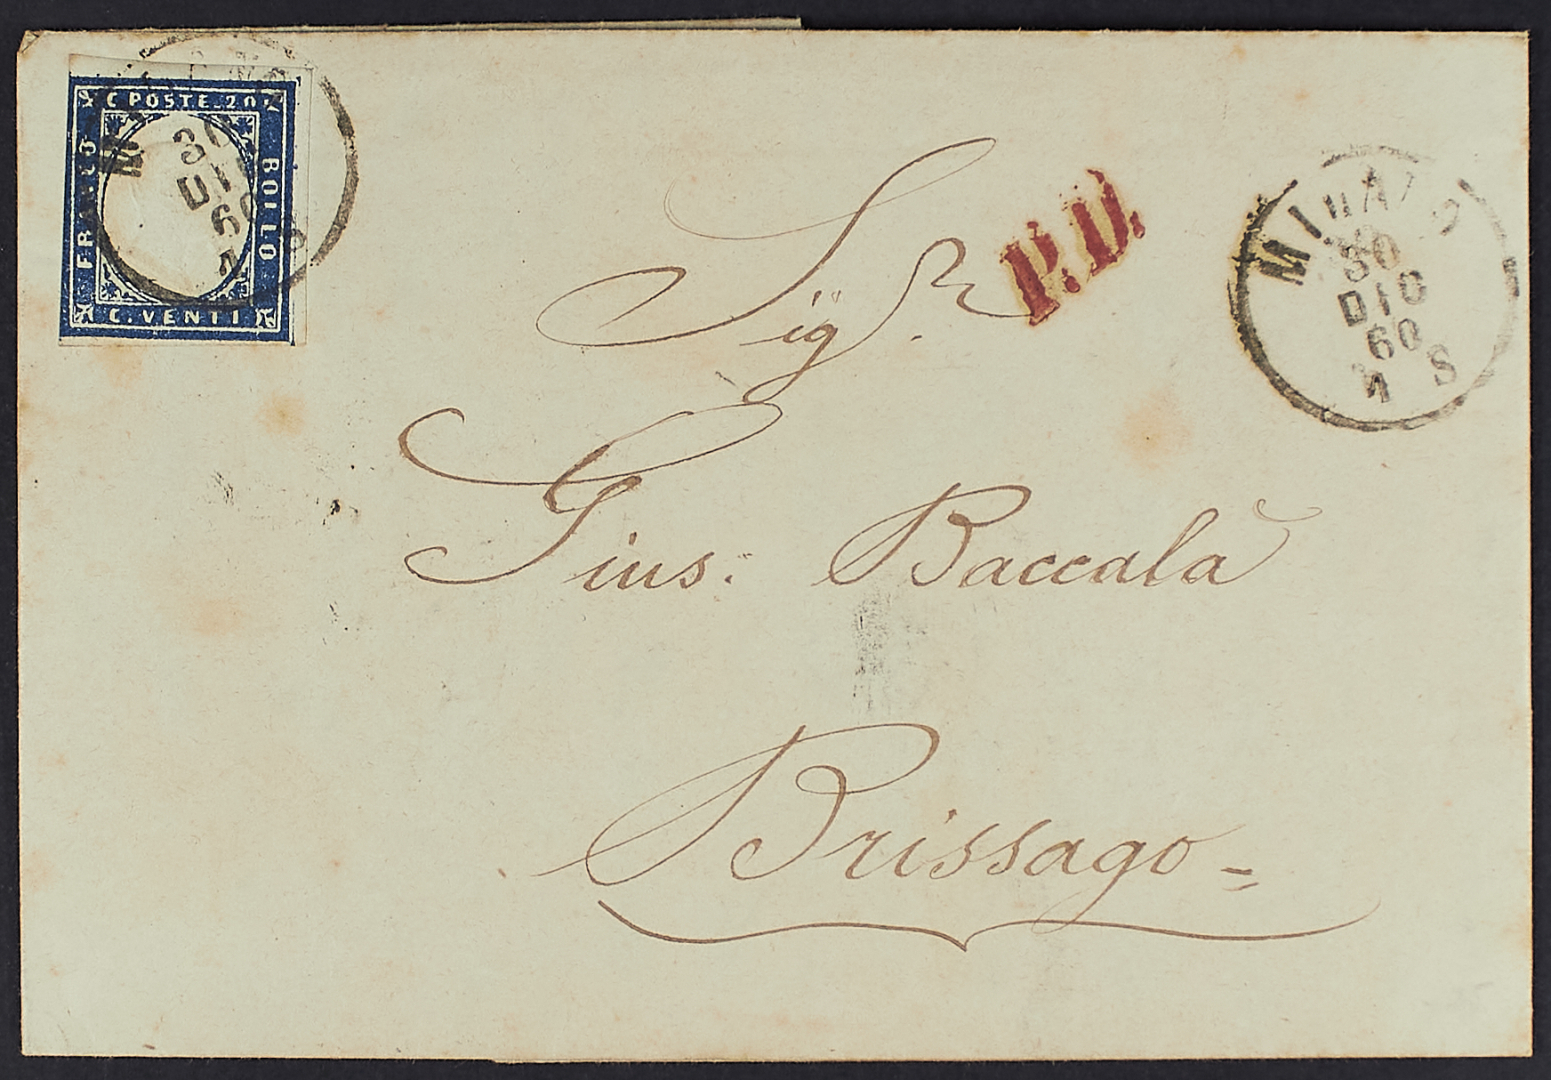 C. POSTE. 20
FRANCO
BOLLO
C. VENTI
MILANO
30
DIC
60
4 S
P.D.
MILANO
30
DIC
60
4 S
Sigr.
Gius: Baccalà
Brissago =